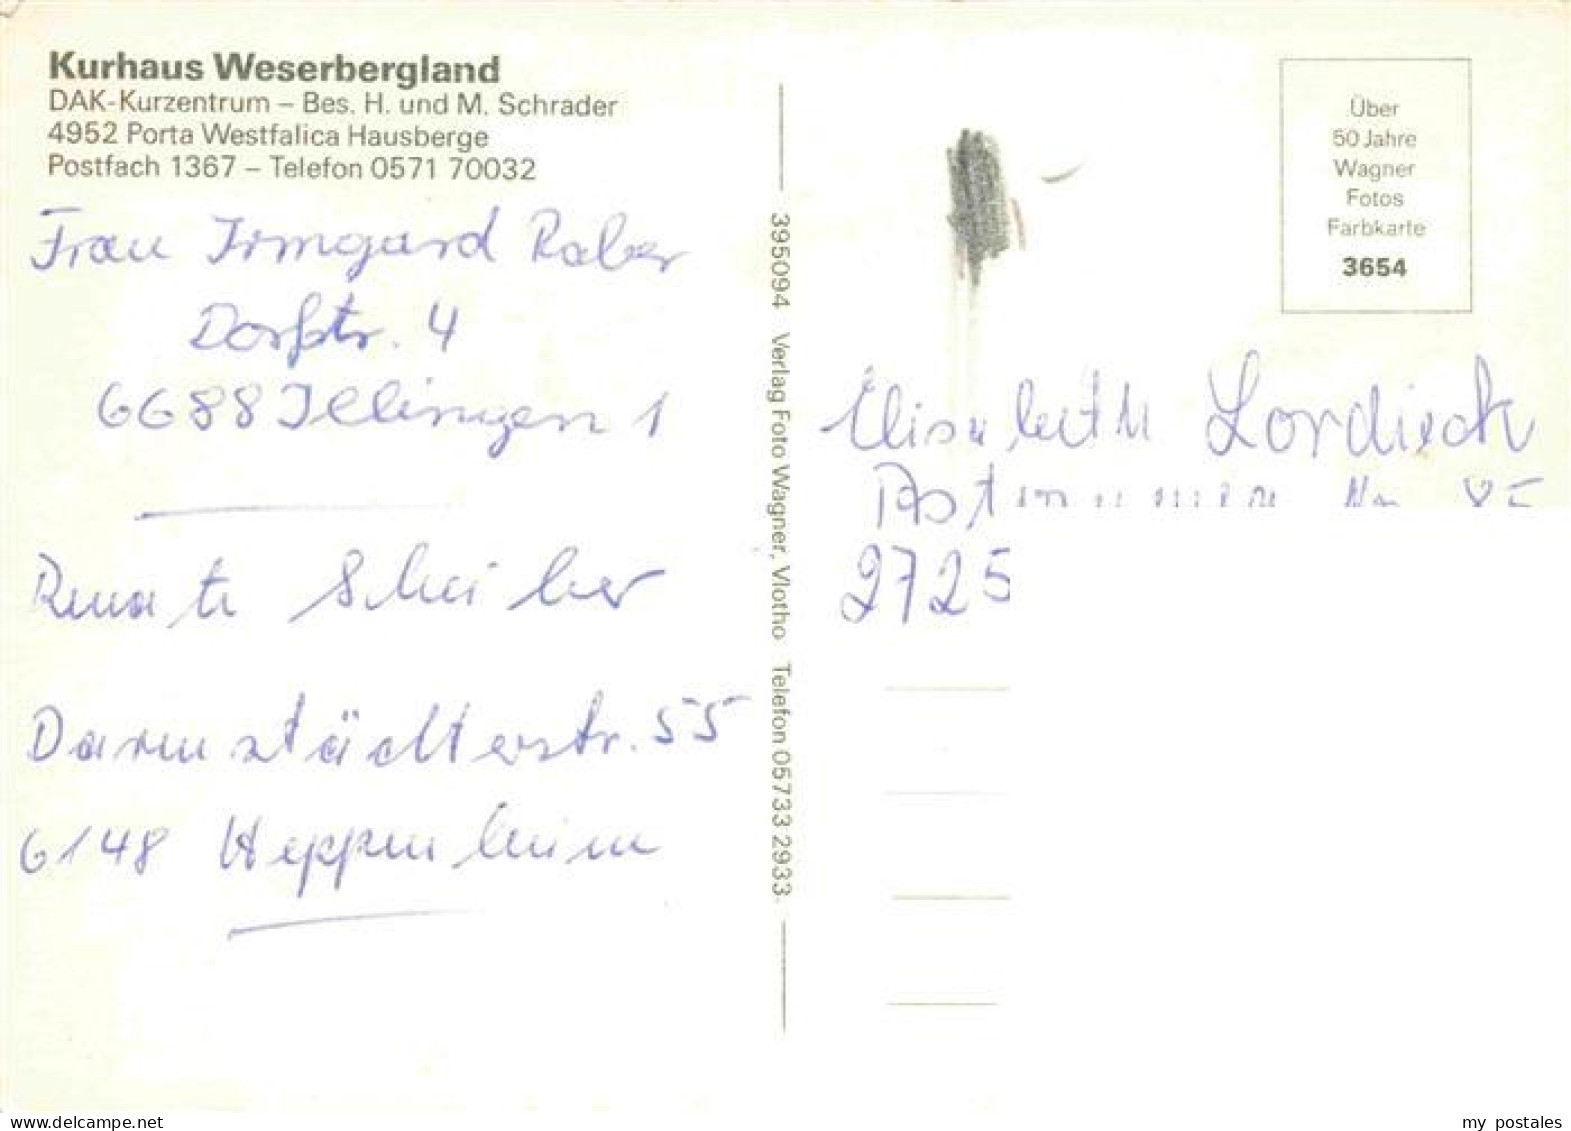 Kurhaus Weserbergland
DAK-Kurzentrum – Bes. H. und M. Schrader
4952 Porta Westfalica Hausberge
Postfach 1367 – Telefon 0571 70032
Frau Irmgard Raber
Dorfstr. 4
6688 Illingen 1
Renate Scheiber
Darmstädterstr. 55
6148 Heppenheim
395094 Verlag Foto Wagner, Vlotho Telefon 05733 2933
Über
50 Jahre
Wagner
Fotos
Farbkarte
3654
Elisabeth Lordieck
2725
my postales